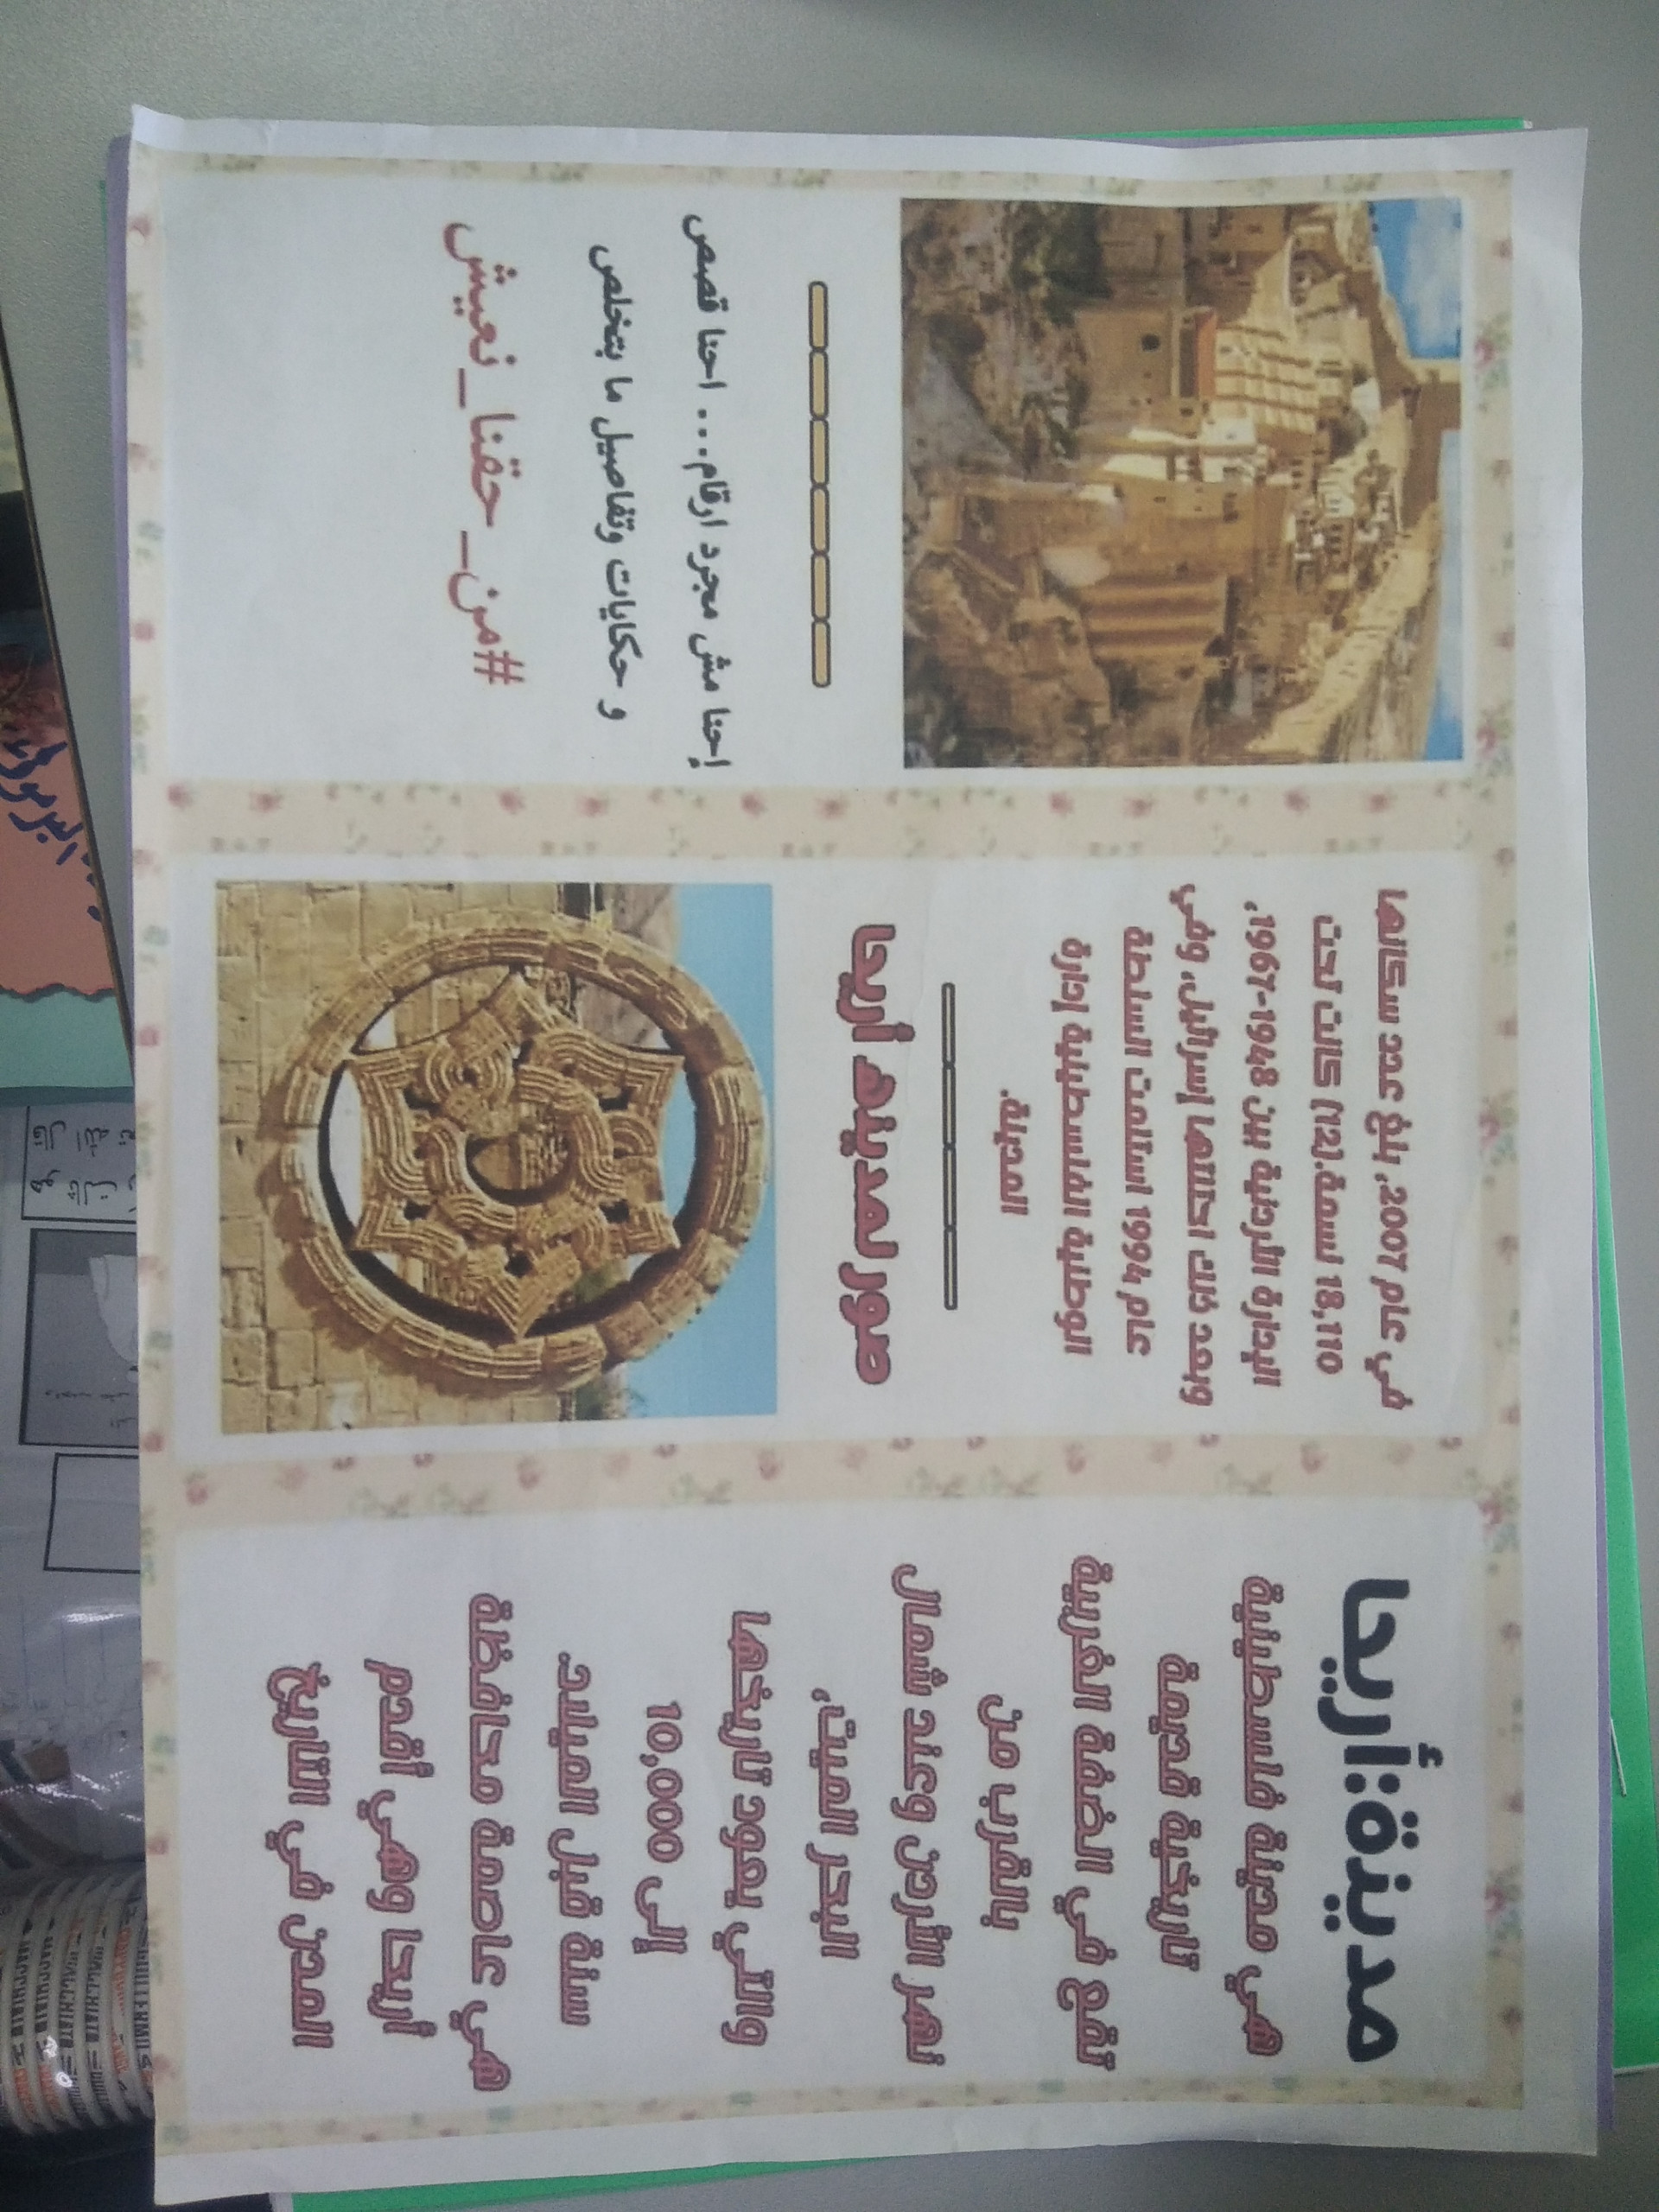 مدينة:أريحا
هي مدينة فلسطينية
تاريخية قديمة
تقع في الضفة الغربية
بالقرب من
نهر الأردن وعند شمال
البحر الميت,
والتي يعود تاريخها
إلى 10,000
سنة قبل الميلاد.
هي عاصمة محافظة
أريحا وهي أقدم
المدن في التاريخ
في عام 2007, بلغ عدد سكانها
18,110 نسمة.[2] كانت تحت
الإدارة الأردنية بين 1948-1967,
وبعد ذلك احتلتها إسرائيل, وفي
عام 1994 استلمت السلطة
الوطنية الفلسطينية إدارة
المدينة.
صور لمدينه أريحا
إحنا مش مجرد ارقام... احنا قصص
و حكايات وتفاصيل ما بتخلص
#من_حقنا_نعيش